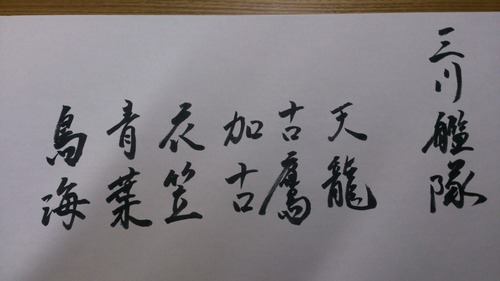 三川艦隊
天龍
古鷹
加古
衣笠
青葉
鳥海